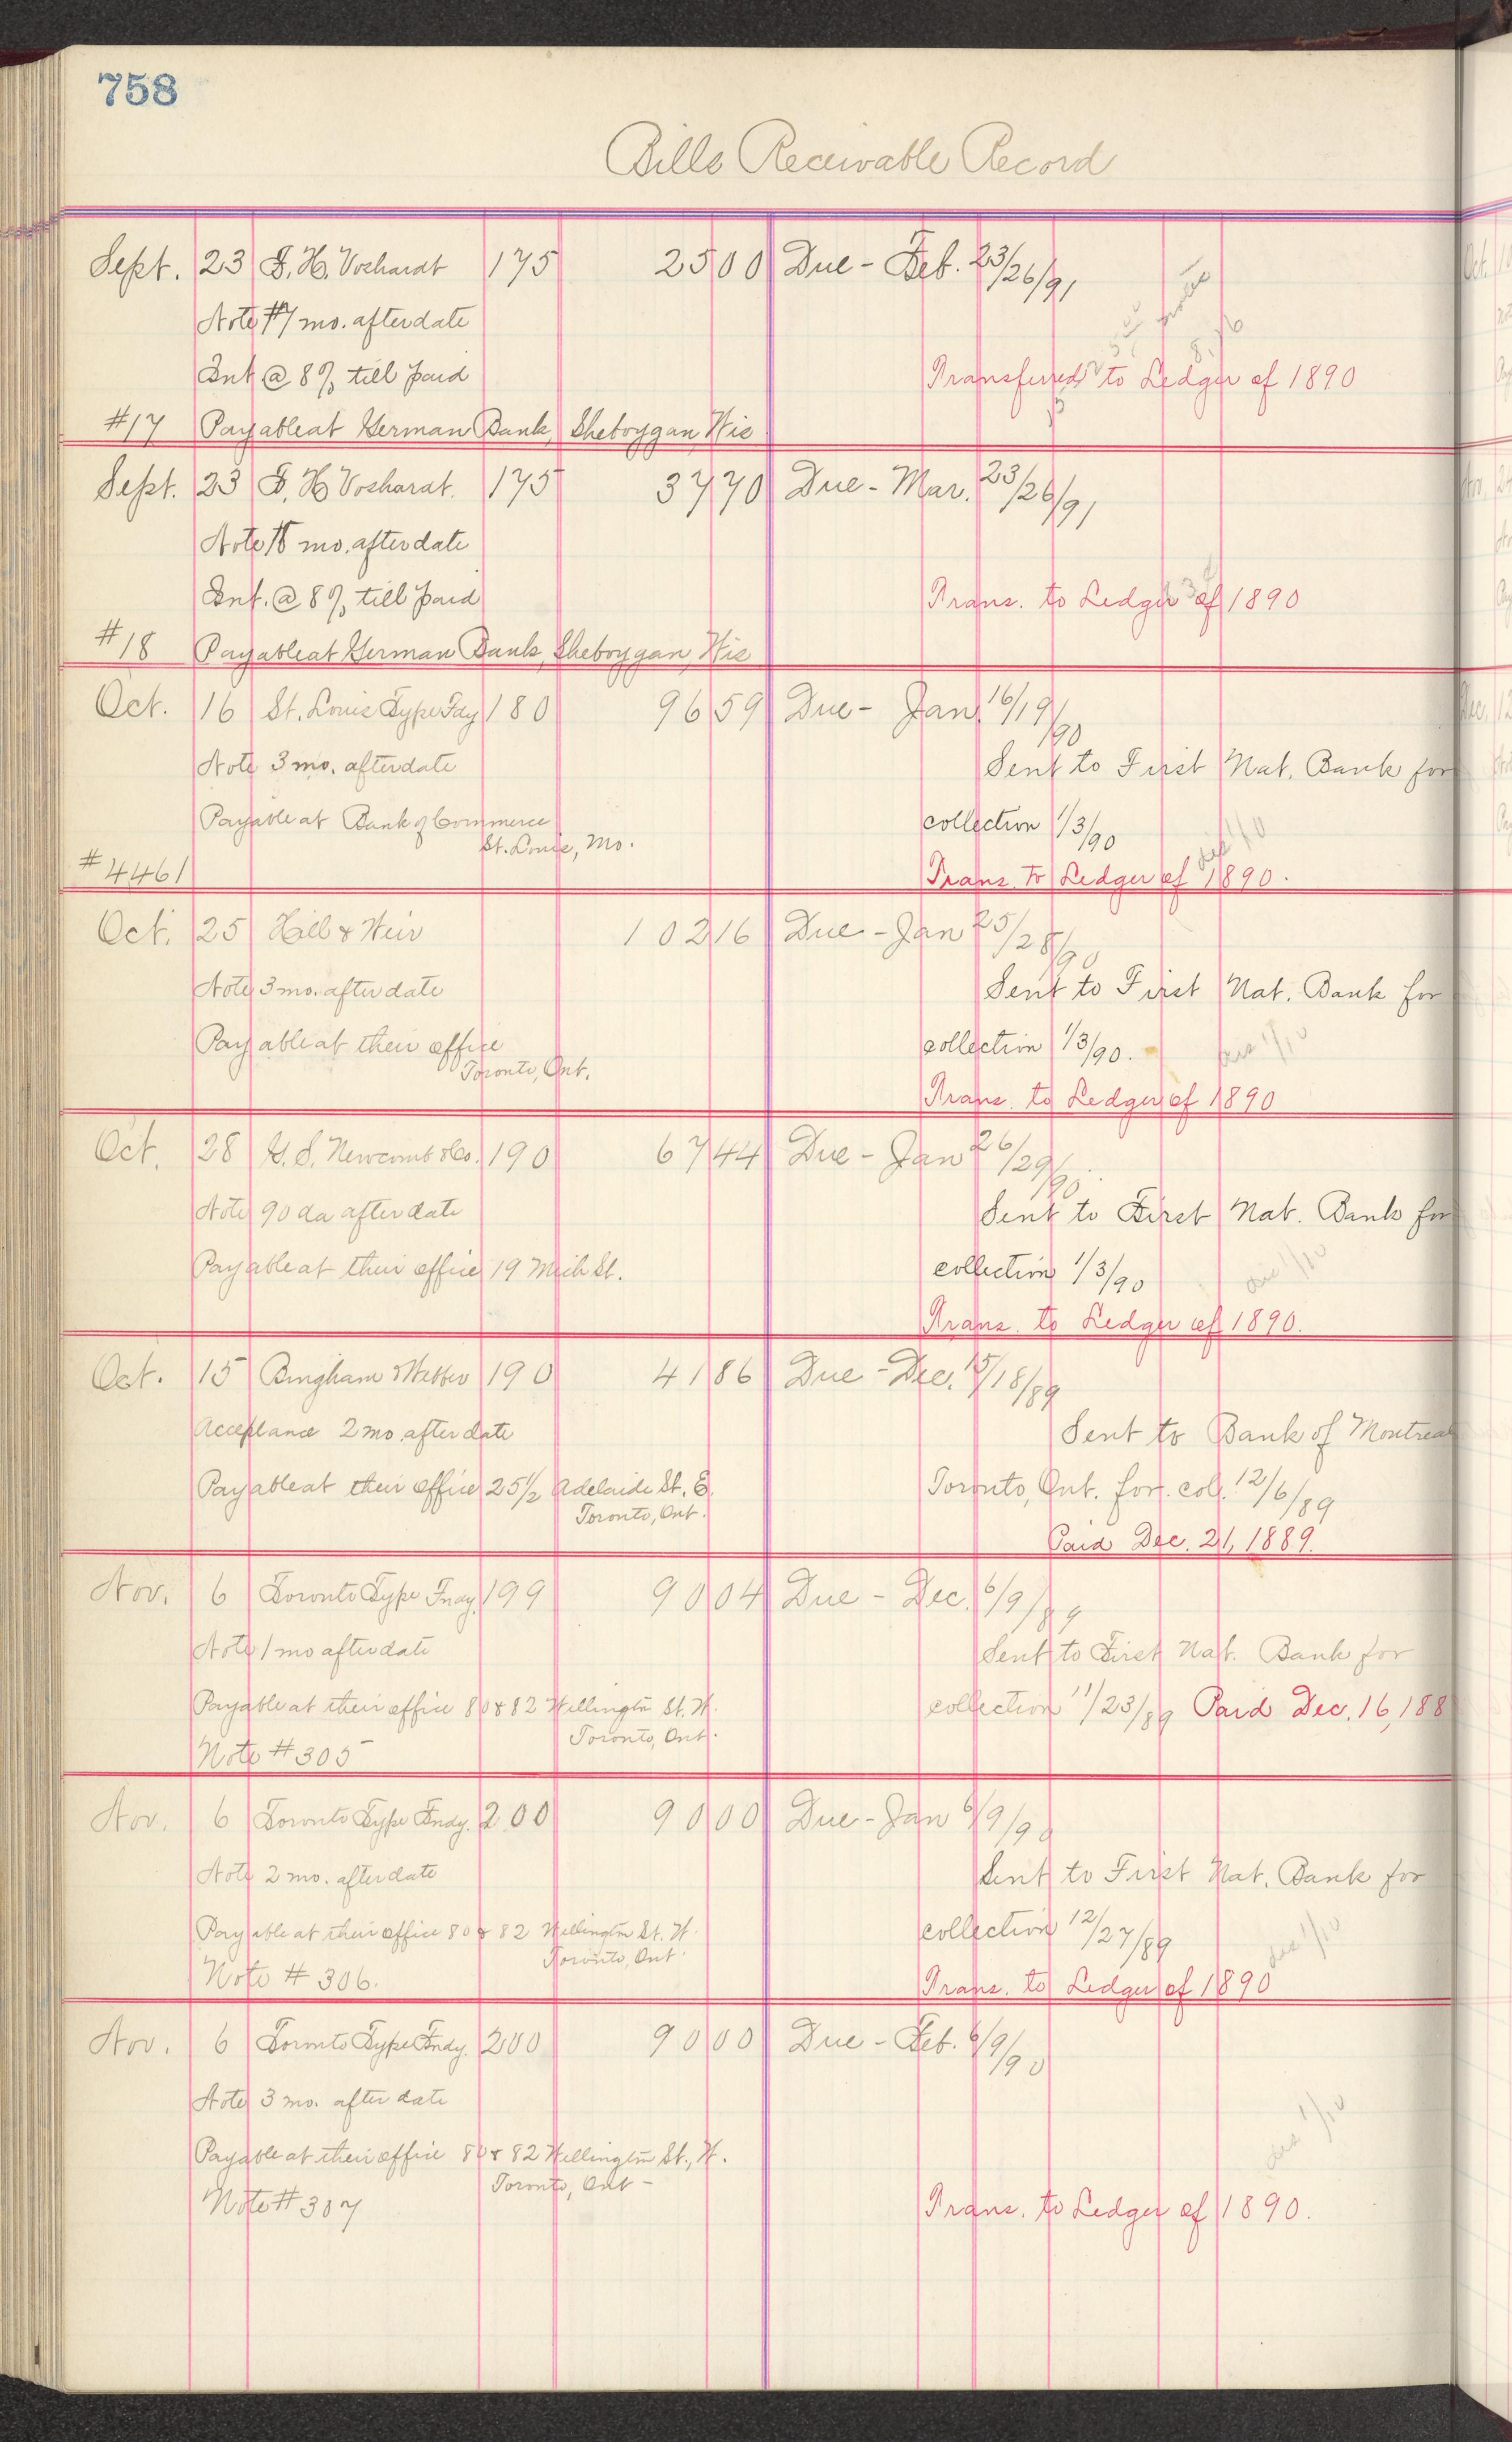 758
Bills Receivable Record
Sept. 23 F. H. Voshardt 175 25 00 Due - Feb. 23/26/91
Note 17 mo. after date
Int @ 8% till paid
Transferred to Ledger of 1890
#17 Payable at German Bank, Sheboygan, Wis
Sept. 23 F. H. Voshardt. 175 37 70 Due - Mar. 23/26/91
Note 18 mo. after date
Int. @ 8% till paid
Trans. to Ledger of 1890
#18 Payable at German Bank, Sheboygan, Wis
Oct. 16 St. Louis Type Fdy 180 96 59 Due - Jan 16/19/90
Note 3 mo. after date
Sent to First Nat. Bank for
Payable at Bank of Commerce
St. Louis, Mo.
collection 1/3/90
#4461
Trans. to Ledger of 1890.
Oct. 25 Hill & Weir 102 16 Due - Jan 25/28/90
Note 3 mo. after date
Sent to First Nat. Bank for
Payable at their office
Toronto, Ont.
collection 1/3/90.
Trans. to Ledger of 1890
Oct. 28 G. S. Newcomb & Co. 190 67 44 Due - Jan 26/29/90
Note 90 da after date
Sent to First Nat. Bank for
Payable at their office 19 Mich St.
collection 1/3/90
Trans. to Ledger of 1890.
Oct. 15 Bingham & Webber 190 41 86 Due - Dec. 15/18/89
Acceptance 2 mo. after date
Sent to Bank of Montreal
Payable at their office 25 1/2 Adelaide St. E.
Toronto, Ont.
Toronto, Ont. for. col. 12/6/89
Paid Dec. 21, 1889.
Nov. 6 Toronto Type Fndy. 199 90 04 Due - Dec. 6/9/89
Note 1 mo after date
Sent to First Nat. Bank for
Payable at their office 80 & 82 Wellington St. W.
Toronto, Ont.
collection 11/23/89 Paid Dec. 16, 188
Note #305
Nov. 6 Toronto Type Fndy. 200 90 00 Due - Jan 6/9/90
Note 2 mo. after date
Sent to First Nat. Bank for
Payable at their office 80 & 82 Wellington St. W.
Toronto, Ont.
collection 12/27/89
Note # 306.
Trans. to Ledger of 1890
Nov. 6 Toronto Type Fndy. 200 90 00 Due - Feb. 6/9/90
Note 3 mo. after date
Payable at their office 80 & 82 Wellington St., W.
Toronto, Ont -
Note # 307
Trans. to Ledger of 1890.